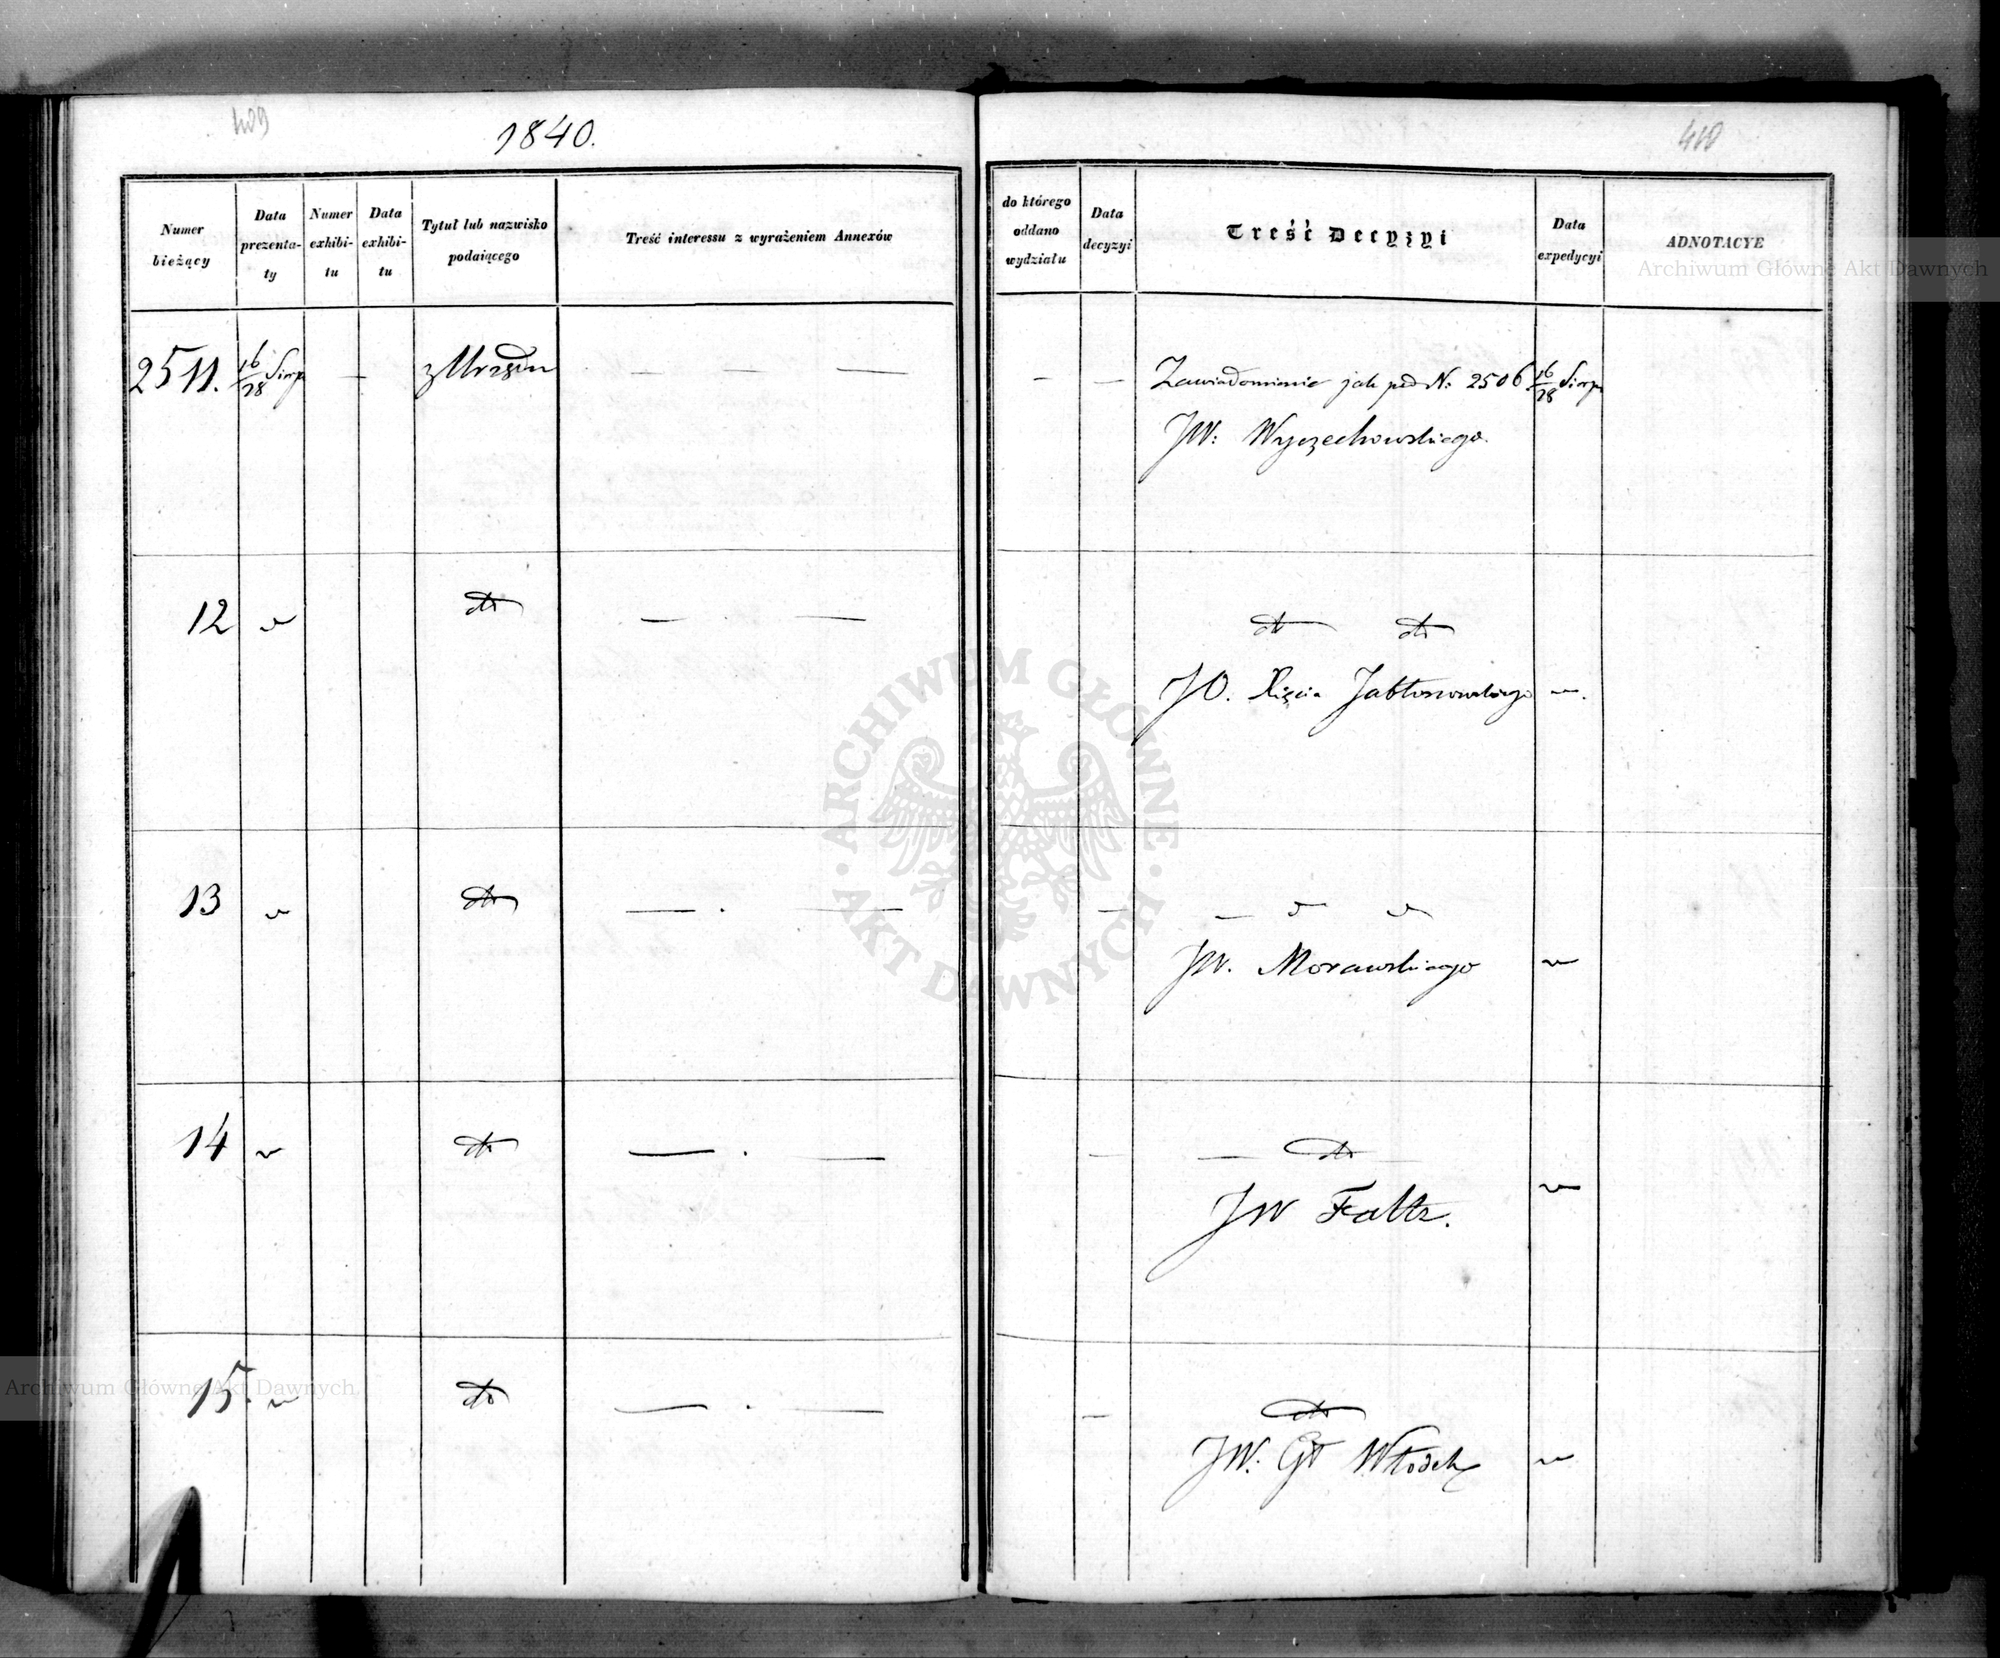 409
1840.
410
Numer bieżący
Data prezenta-ty
Numer exhibi-tu
Data exhibi-tu
Tytuł lub nazwisko podaiącego
Treść interessu z wyrażeniem Annexów
do którego oddano wydziału
Data decyzyi
Treść Decyzyi
Data expedycyi
ADNOTACYE
Archiwum Główne Akt Dawnych
2511. 16/28 Sierp — z Urzędu — — — — — Zawiadomienie jak pod N: 2506 16/28 Sierp
JW: Wyczechowskiego.
12 " dto — . — dto dto
JO. Xięcia Jabłonowskiego " .
13 " dto — . — — — " "
JW. Morawskiego "
14 " dto — . — — — dto —
JW Faltz. "
15. " dto — . — — dto
JW: Gł Włodek "
ARCHIWUM GŁÓWNE · AKT DAWNYCH ·
Archiwum Główne Akt Dawnych